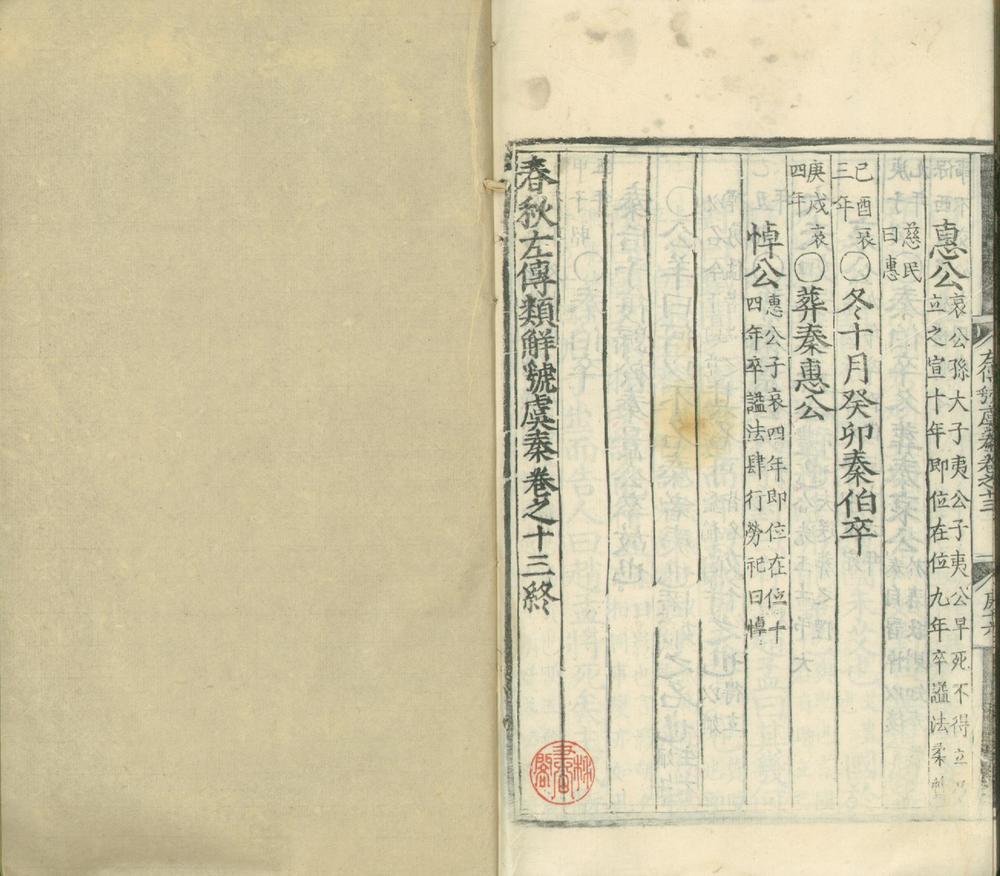 惠公哀公孫大子夷公子夷公早死不得立
立之宣十年即位在位九年卒諡法柔質
慈民
曰惠
己酉哀
三年
〇冬十月癸卯秦伯卒
庚戌哀
四年
〇葬秦惠公
悼公惠公子哀四年即位在位十
四年卒諡法肆行勞祀曰悼
春秋左傳類解虢虞秦卷之十三終